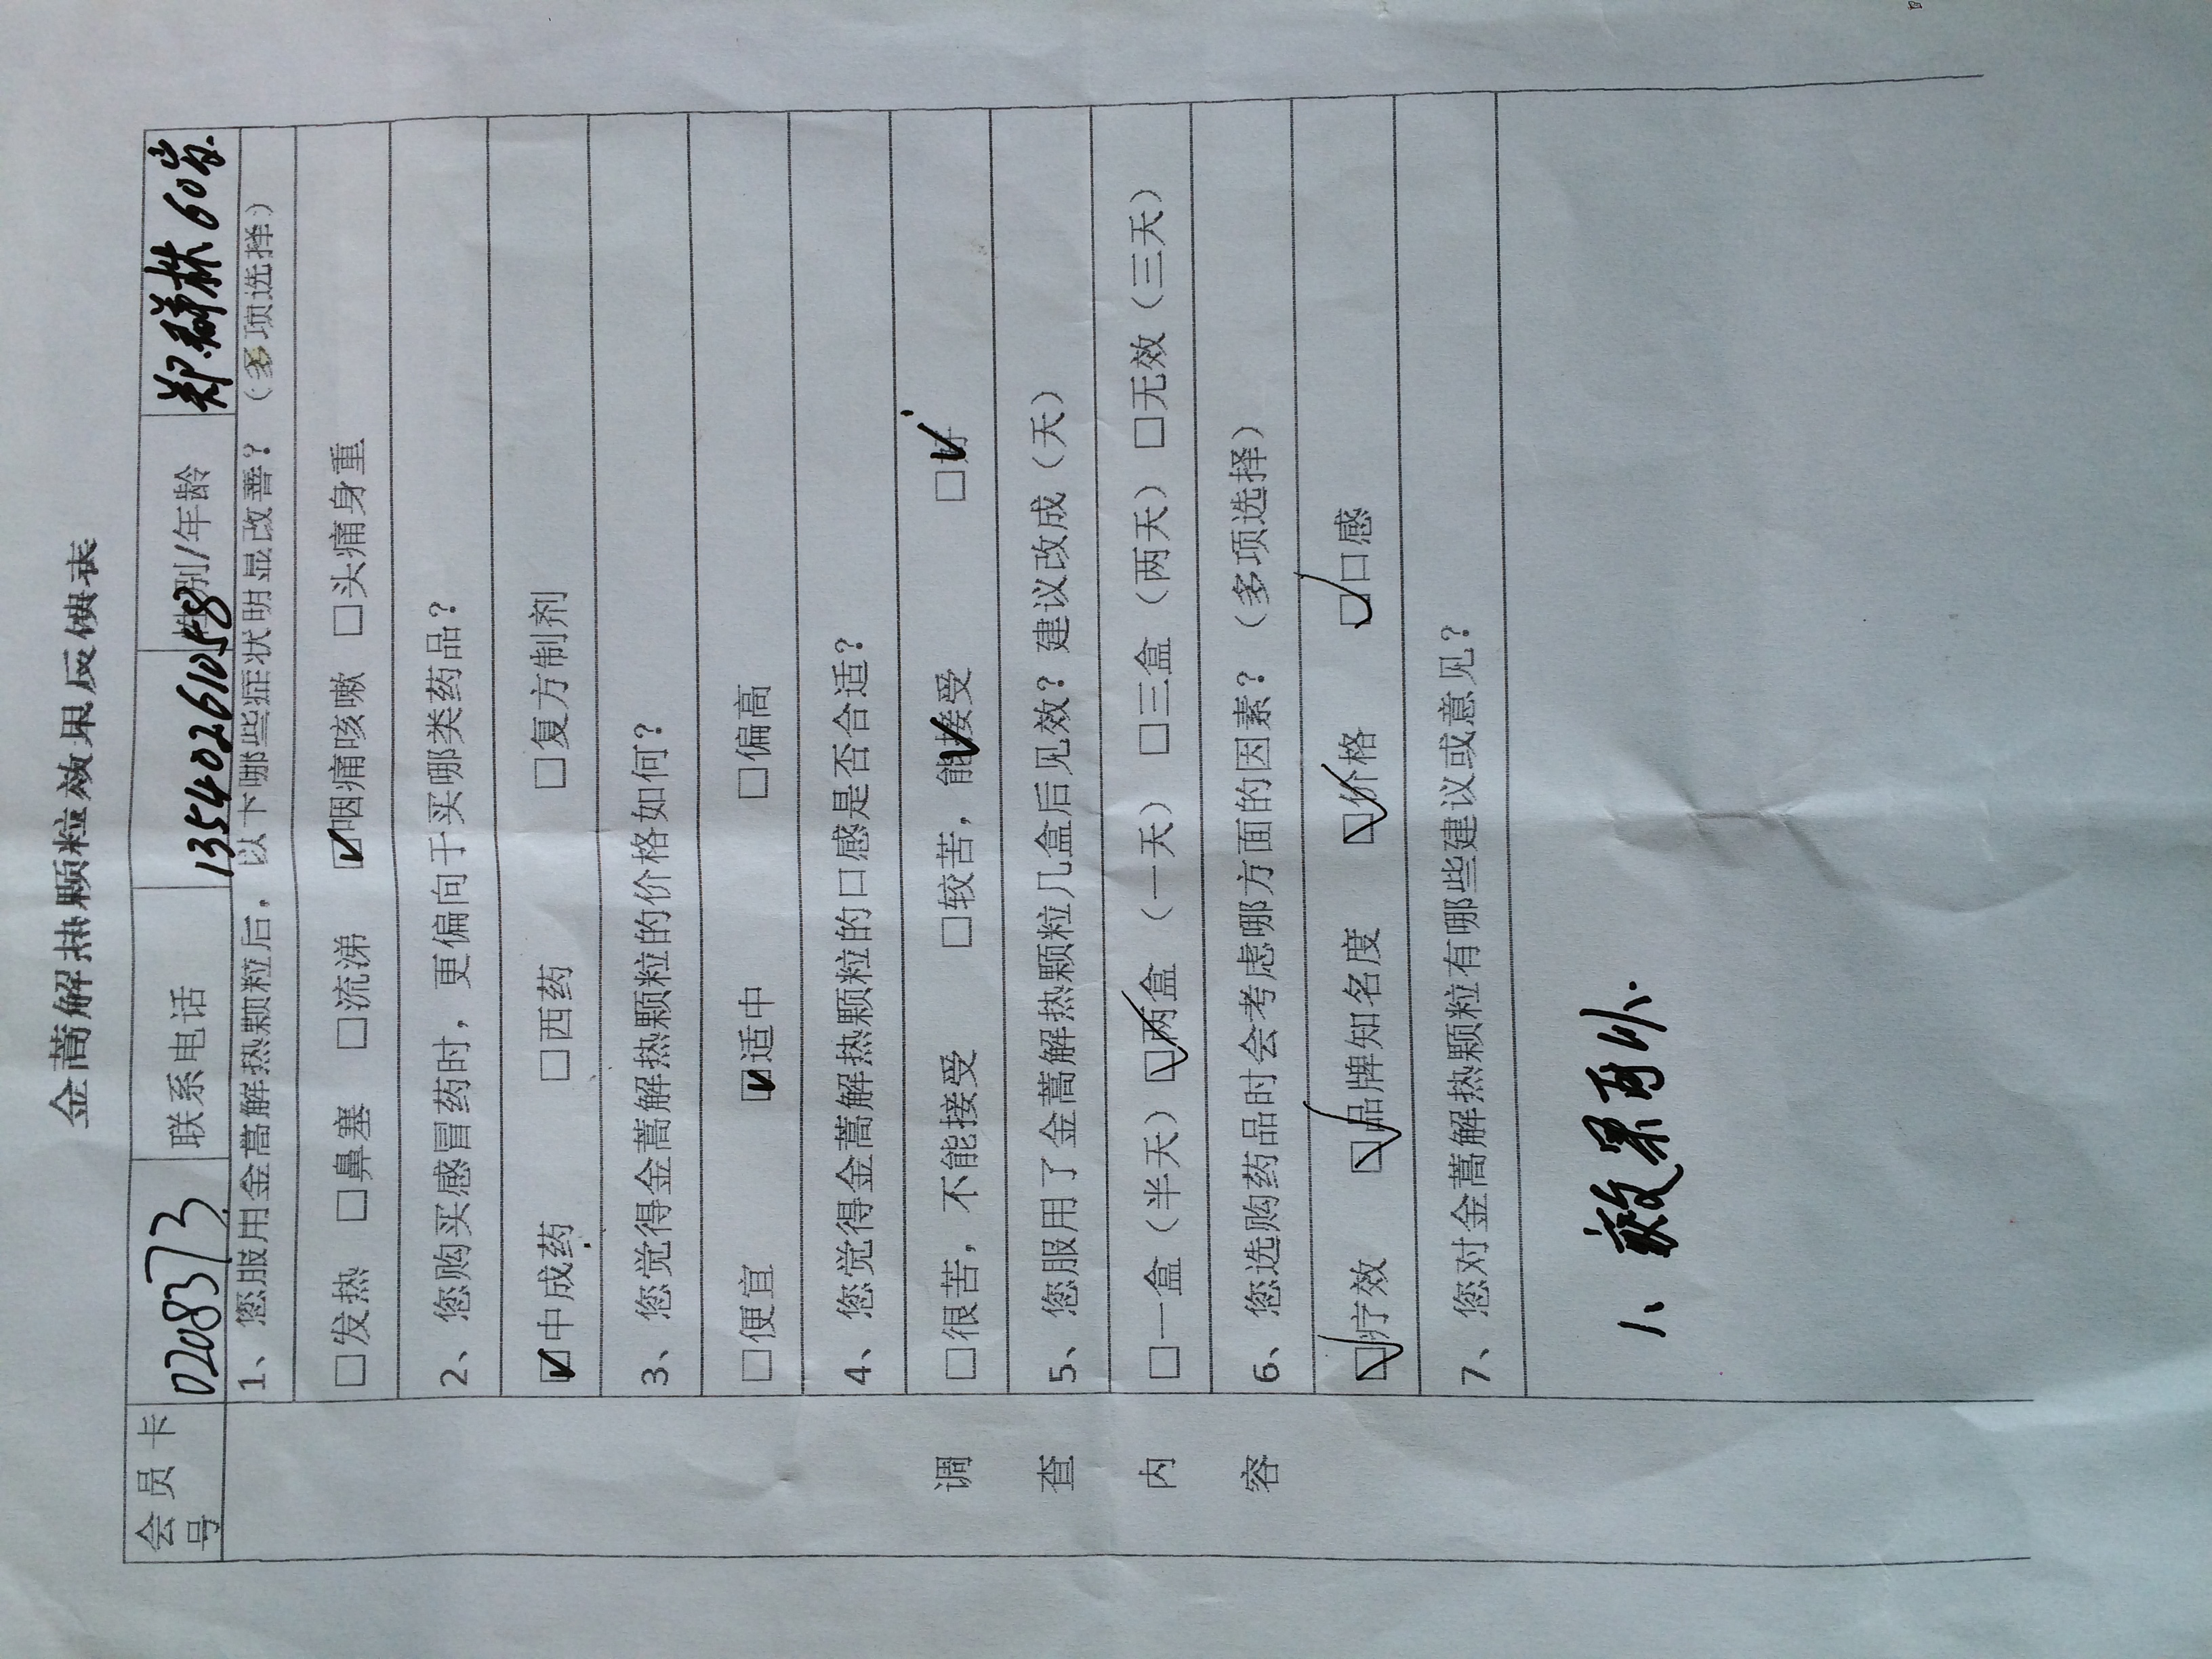 金蒿解热颗粒效果反馈表
会员卡号 0208373 联系电话 13554026105 性别/年龄 郑群林 60岁.
1、您服用金蒿解热颗粒后，以下哪些症状明显改善？（多项选择）
□发热 □鼻塞 □流涕 ☑咽痛咳嗽 □头痛身重
2、您购买感冒药时，更偏向于买哪类药品？
☑中成药 □西药 □复方制剂
3、您觉得金蒿解热颗粒的价格如何？
□便宜 ☑适中 □偏高
4、您觉得金蒿解热颗粒的口感是否合适？
□很苦，不能接受 □较苦，能接受 □好
5、您服用了金蒿解热颗粒几盒后见效？建议改成（天）
□一盒（半天） ☑两盒（一天） □三盒（两天） □无效（三天）
6、您选购药品时会考虑哪方面的因素？（多项选择）
☑疗效 ☑品牌知名度 ☑价格 ☑口感
7、您对金蒿解热颗粒有哪些建议或意见？
1、效果可以.
调查内容